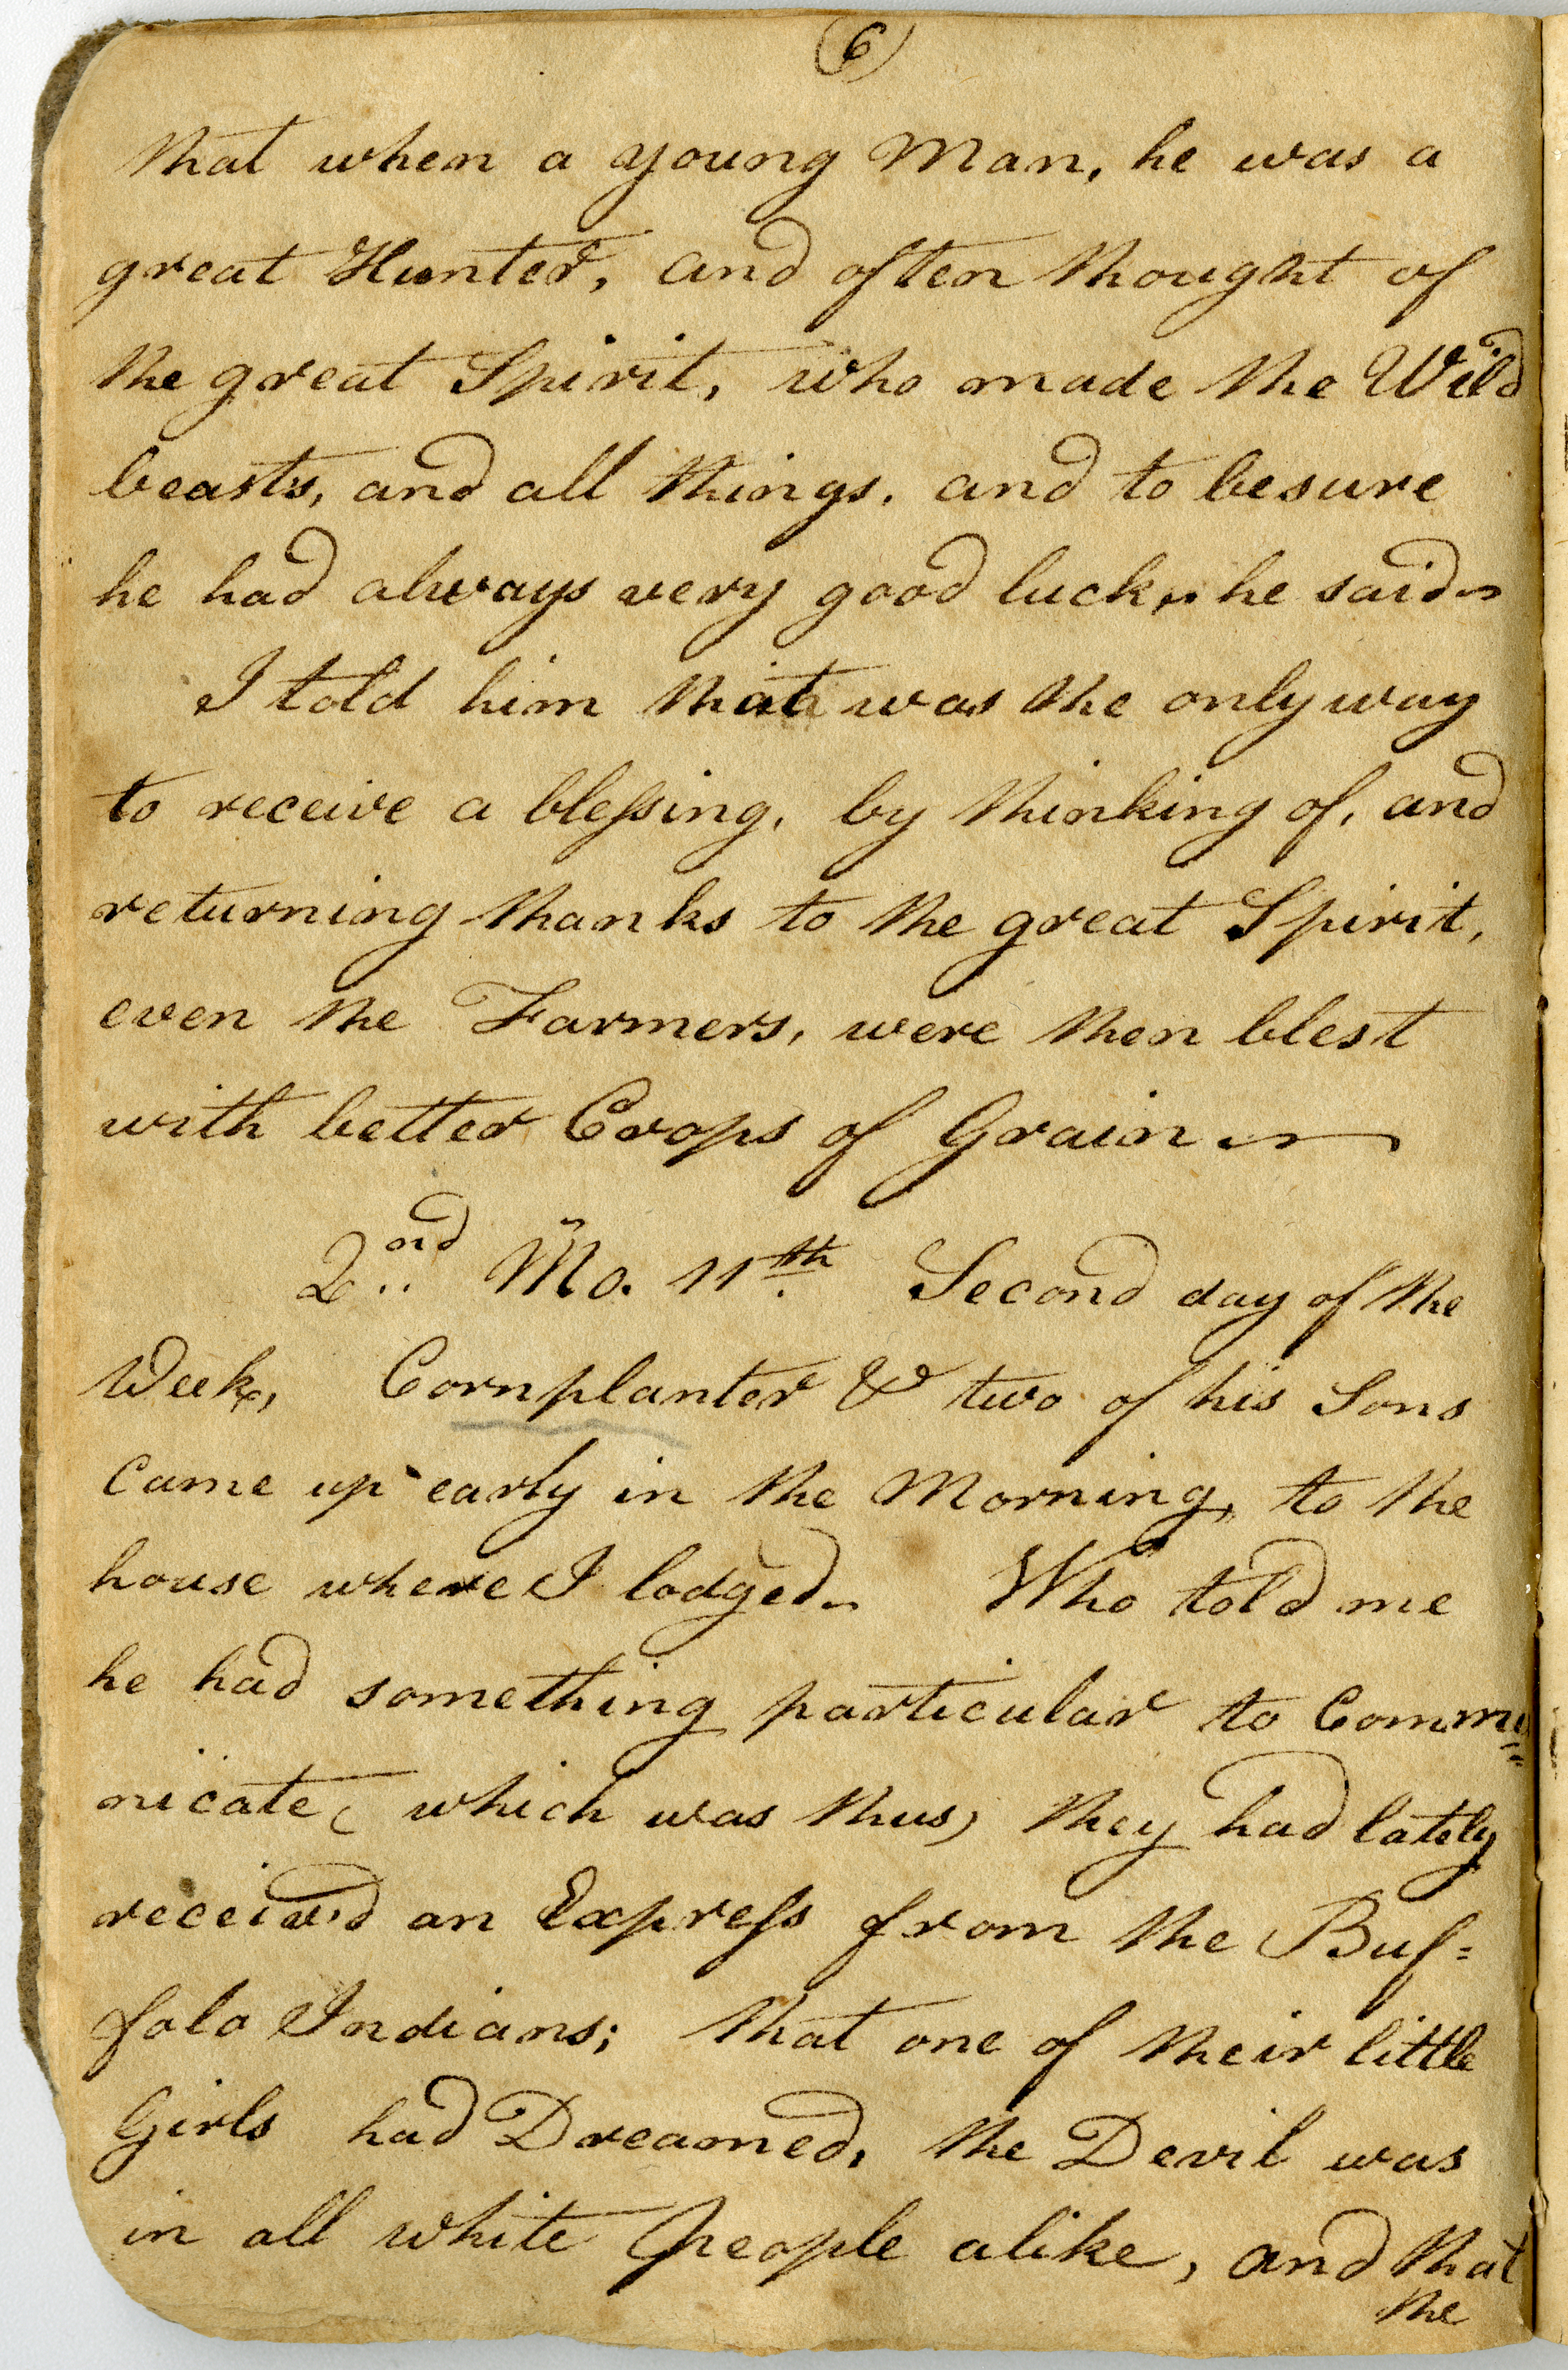 (6)
that when a young Man, he was a
great Hunter, and often thought of
the great Spirit, who made the Wild
beasts, and all things, and to besure
he had always very good luck, he said
I told him that was the only way
to receive a blessing, by thinking of, and
returning thanks to the great Spirit,
even the Farmers, were then blest
with better Crops of Grain
2nd Mo. 11th Second day of the
Week, Cornplanter & two of his Sons
came up early in the Morning, to the
house where I lodged. Who told me
he had something particular to Commu=
nicate, (which was thus) they had lately
received an Express from the Buf=
falo Indians; that one of their little
Girls had Dreamed, the Devil was
in all white People alike, and that
the